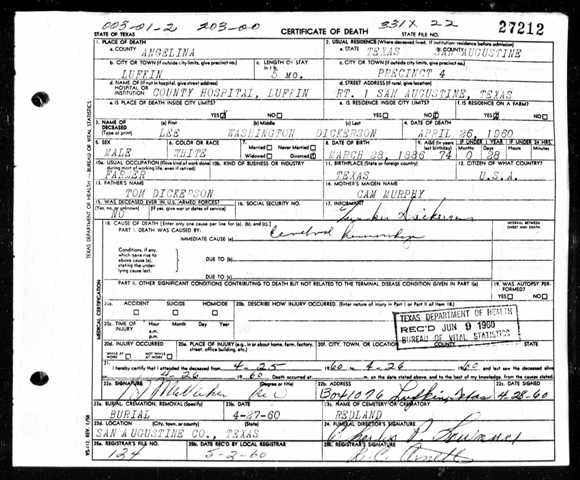 003-01-2 203-00 331X 22
STATE OF TEXAS CERTIFICATE OF DEATH STATE FILE NO. 27212
1. PLACE OF DEATH 2. USUAL RESIDENCE (Where deceased lived. If institution: residence before admission)
a. COUNTY ANGELINA a. STATE TEXAS b. COUNTY SAN AUGUSTINE
b. CITY OR TOWN (If outside city limits, give precinct no.) c. LENGTH OF STAY in 1 b. c. CITY OR TOWN (If outside city limits, give precinct no.)
LUFKIN 5 MO. PRECINCT 4
d. NAME OF (If not in hospital, give street address) HOSPITAL OR INSTITUTION COUNTY HOSPITAL, LUFKIN d. STREET ADDRESS (If rural, give location) RT. 1 SAN AUGUSTINE, TEXAS
e. IS PLACE OF DEATH INSIDE CITY LIMITS? e. IS RESIDENCE INSIDE CITY LIMITS? f. IS RESIDENCE ON A FARM?
YES NO YES NO YES NO
3. NAME OF DECEASED (Type or print) (a) First (b) Middle (c) Last 4. DATE OF DEATH
LEE WASHINGTON DICKERSON APRIL 26, 1960
5. SEX 6. COLOR OR RACE 7. Married Never Married 8. DATE OF BIRTH 9. AGE (In years last birthday) IF UNDER 1 YEAR IF UNDER 24 HRS.
MALE WHITE Widowed Divorced MARCH 28, 1886 74 0 28
10a. USUAL OCCUPATION 10b. KIND OF BUSINESS OR INDUSTRY 11. BIRTHPLACE (State or foreign country) 12. CITIZEN OF WHAT COUNTRY?
TEXAS U.S.A.
13. FATHER'S NAME 14. MOTHER'S MAIDEN NAME
TOM DICKERSON CAM MURPHY
15. WAS DECEASED EVER IN U.S. ARMED FORCES? 16. SOCIAL SECURITY NO. 17. INFORMANT
(Yes, no, or unknown) (If yes, give war or dates of service)
NO Dickerson
18. CAUSE OF DEATH [Enter only one cause per line for (a), (b), and (c).] INTERVAL BETWEEN ONSET AND DEATH
PART I. DEATH WAS CAUSED BY:
IMMEDIATE CAUSE (a) Cerebral Hemorrhage
Conditions, if any, which gave rise to above cause (a), stating the underlying cause last.
DUE TO (b)
DUE TO (c)
PART II. OTHER SIGNIFICANT CONDITIONS CONTRIBUTING TO DEATH BUT NOT RELATED TO THE TERMINAL DISEASE CONDITION GIVEN IN PART I(a) 19. WAS AUTOPSY PERFORMED?
YES NO
20a. ACCIDENT SUICIDE HOMICIDE 20b. DESCRIBE HOW INJURY OCCURRED. (Enter nature of injury in Part I or Part II of item 18.)
20c. TIME OF INJURY Hour Month Day Year
a.m.
p.m.
TEXAS DEPARTMENT OF HEALTH
REC'D JUN 9 1960
BUREAU OF VITAL STATISTICS
20d. INJURY OCCURRED 20e. PLACE OF INJURY (e.g., in or about home, farm, factory, street, office building, etc.) 20f. CITY, TOWN, OR LOCATION COUNTY
WHILE AT WORK NOT WHILE AT WORK
21. I hereby certify that I attended the deceased from 4-25 1960 4-26 1960
4-26 1960. Death occurred at m. on the date stated above, and to the best of my knowledge, from the causes stated.
22a. SIGNATURE (Degree or title) 22b. ADDRESS 22c. DATE SIGNED
Box 1076 Lufkin Texas 4-28-60
23a. BURIAL, CREMATION, REMOVAL (Specify) 23b. DATE 23c. NAME OF CEMETERY OR CREMATORY
BURIAL 4-27-60 REDLAND
23d. LOCATION (City, town, or county) (State) 24. FUNERAL DIRECTOR'S SIGNATURE
SAN AUGUSTINE CO., TEXAS Charles
25a. REGISTRAR'S FILE NO. 25b. DATE REC'D BY LOCAL REGISTRAR 25c. REGISTRAR'S SIGNATURE
124 5-2-60
TEXAS DEPARTMENT OF HEALTH—BUREAU OF VITAL STATISTICS
MEDICAL CERTIFICATION
VS-112, REV. 1/58